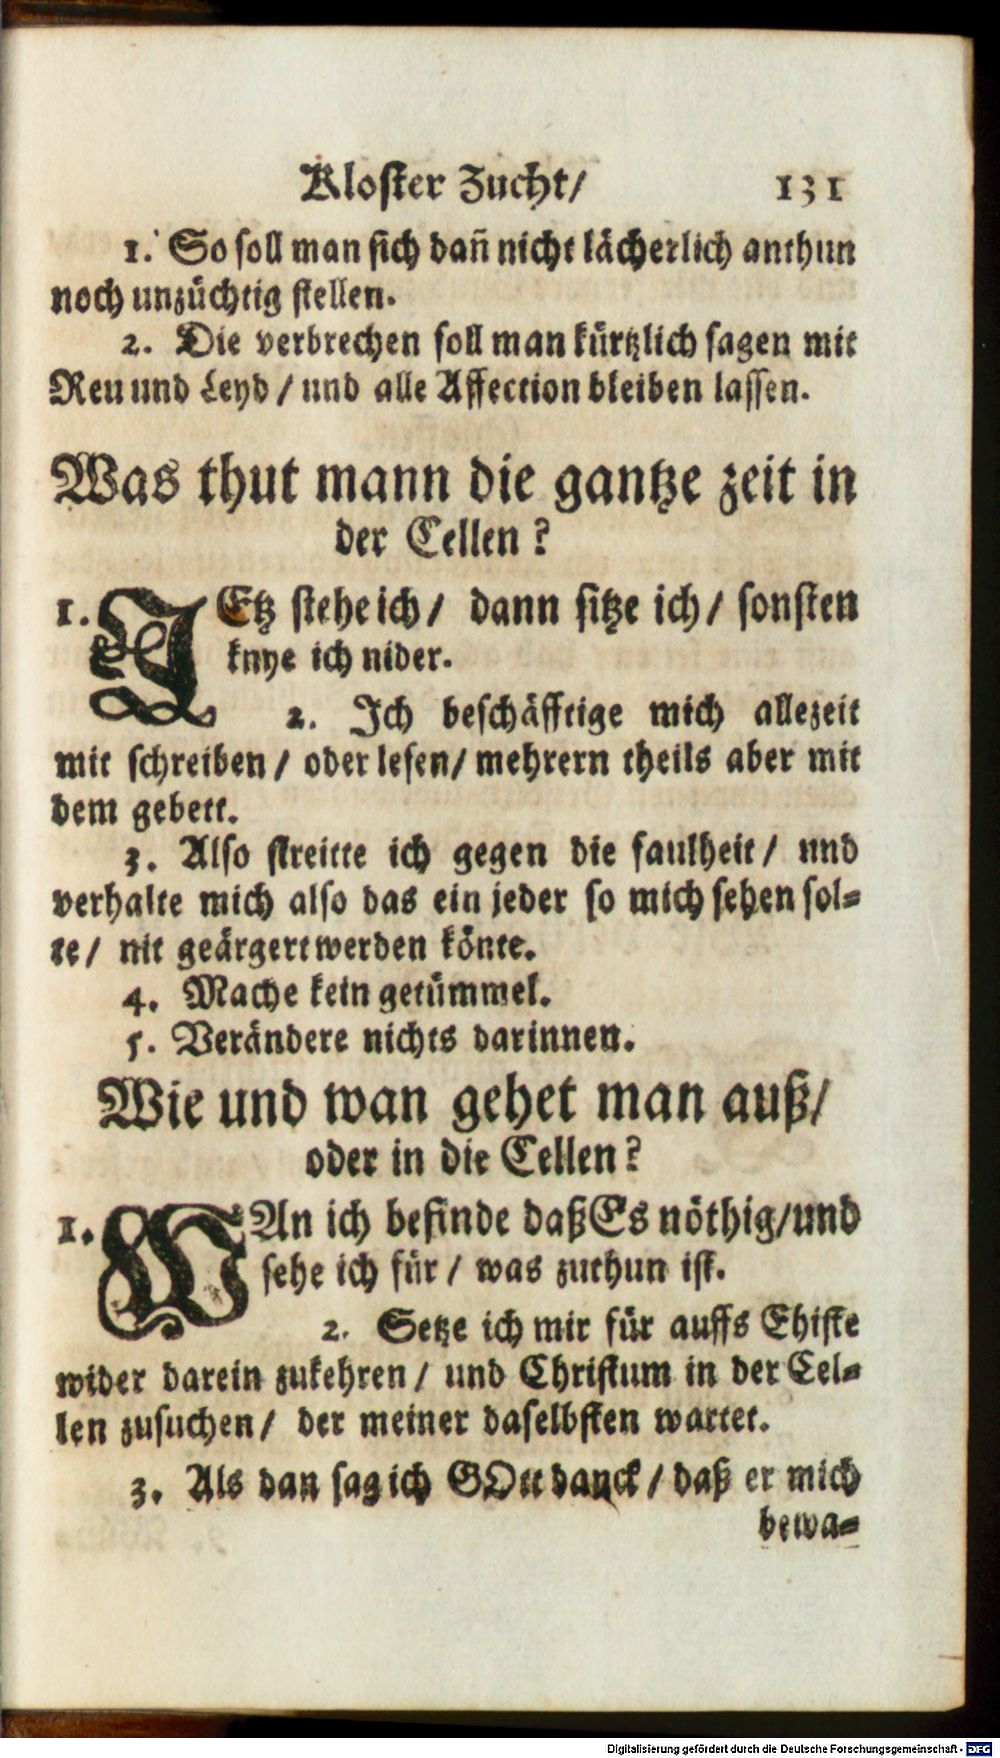 Kloster Zucht/ 131
1. So soll man sich dañ nicht lächerlich anthun
noch unzüchtig stellen.
2. Die verbrechen soll man kürtzlich sagen mit
Reu und Leyd / und alle Affection bleiben lassen.
Was thut mann die gantze zeit in
der Cellen?
1. JEtz stehe ich/ dann sitze ich/ sonsten
knye ich nider.
2. Ich beschäfftige mich allezeit
mit schreiben/ oder lesen/ mehrern theils aber mit
dem gebett.
3. Also streitte ich gegen die faulheit/ und
verhalte mich also das ein jeder so mich sehen sol-
te/ nit geärgert werden könte.
4. Mache kein getümmel.
5. Verändere nichts darinnen.
Wie und wan gehet man auß/
oder in die Cellen?
1. WAn ich befinde daß Es nöthig/und
sehe ich für / was zuthun ist.
2. Setze ich mir für auffs Ehiste
wider darein zukehren / und Christum in der Cel-
len zusuchen/ der meiner daselbsten wartet.
3. Als dan sag ich GOtt danck / daß er mich
bewa-
Digitalisierung gefördert durch die Deutsche Forschungsgemeinschaft - DFG